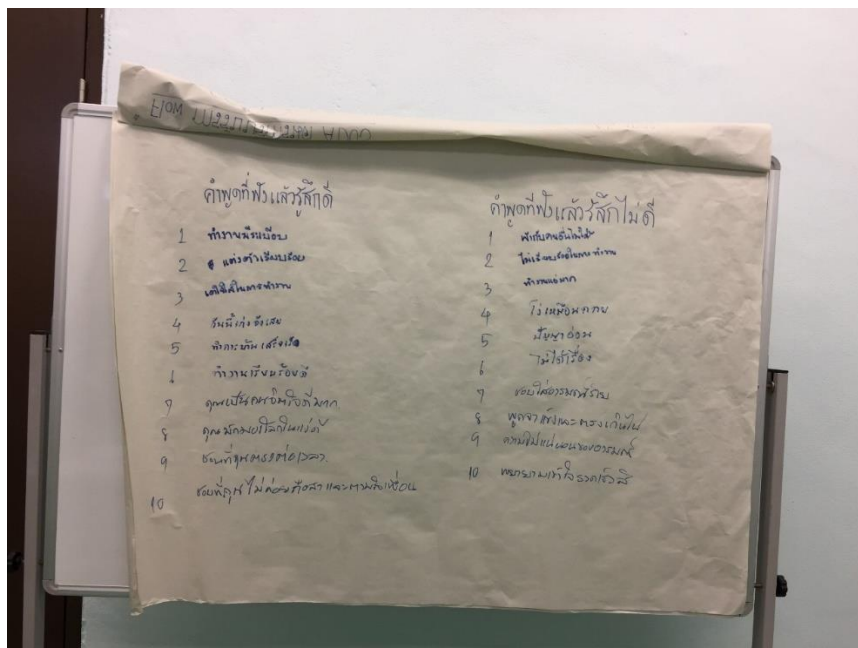 คำพูดที่ฟังแล้วรู้สึกดี
1 ทำงานมีระเบียบ
2 แต่งตัวเรียบร้อย
3 เอาใจใส่ในการทำงาน
4 วันนี้เก่งจังเลย
5 ทำการบ้านเสร็จเร็ว
6 ทำงานเรียบร้อยดี
7 คุณเป็นคนอัธยาศัยดีมาก
8 คุณมักมองโลกในแง่ดี
9 ชอบที่คุณตรงต่อเวลา
10 ชอบที่คุณไม่ค่อยถือสาและตามใจเพื่อน
คำพูดที่ฟังแล้วรู้สึกไม่ดี
1 เข้ากับคนอื่นไม่ได้
2 ไม่เรียบร้อยในการทำงาน
3 ทำงานแย่มาก
4 โง่เหมือนควาย
5 ปัญญาอ่อน
6 ไม่ได้เรื่อง
7 ชอบใส่อารมณ์ร้าย
8 พูดจาแข็งและตรงเกินไป
9 ความไม่แน่นอนของอารมณ์
10 พยายามเข้าใจ